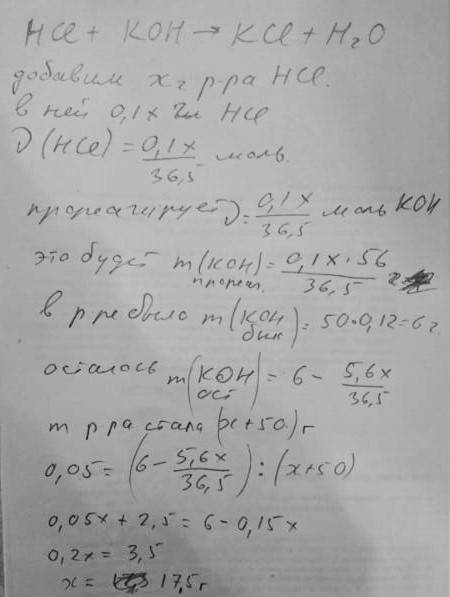 HCl + KOH → KCl + H₂O
добавим x г р-ра HCl.
в ней 0,1x г HCl
ν(HCl) = 0,1x / 36,5 моль.
прореагирует ν = 0,1x / 36,5 моль KOH
это будет m(KOH) прореаг. = 0,1x · 56 / 36,5
в р-ре было m(KOH был) = 50·0,12 = 6 г.
осталось m(KOH ост) = 6 - 5,6x / 36,5
m р-ра стала (x+50) г
0,05 = (6 - 5,6x / 36,5) : (x+50)
0,05x + 2,5 = 6 - 0,15x
0,2x = 3,5
x = 17,5 г